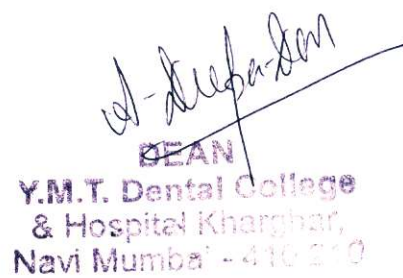 DEAN
Y.M.T. Dental College
& Hospital Kharghar,
Navi Mumbai - 410 210